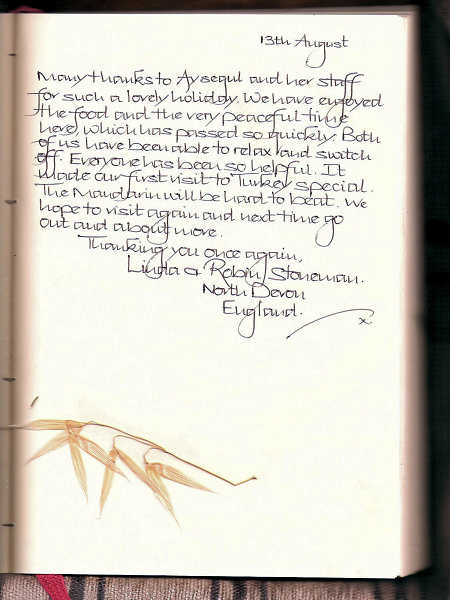 13th August
Many thanks to Aysegul and her staff
for such a lovely holiday. We have enjoyed
the food and the very peaceful time
here, which has passed so quickly. Both
of us have been able to relax and switch
off. Everyone has been so helpful. It
made our first visit to Turkey special.
The Mandarin will be hard to beat. We
hope to visit again and next time go
out and about more.
Thanking you once again,
Linda & Robin Stoneman.
North Devon
England.
x